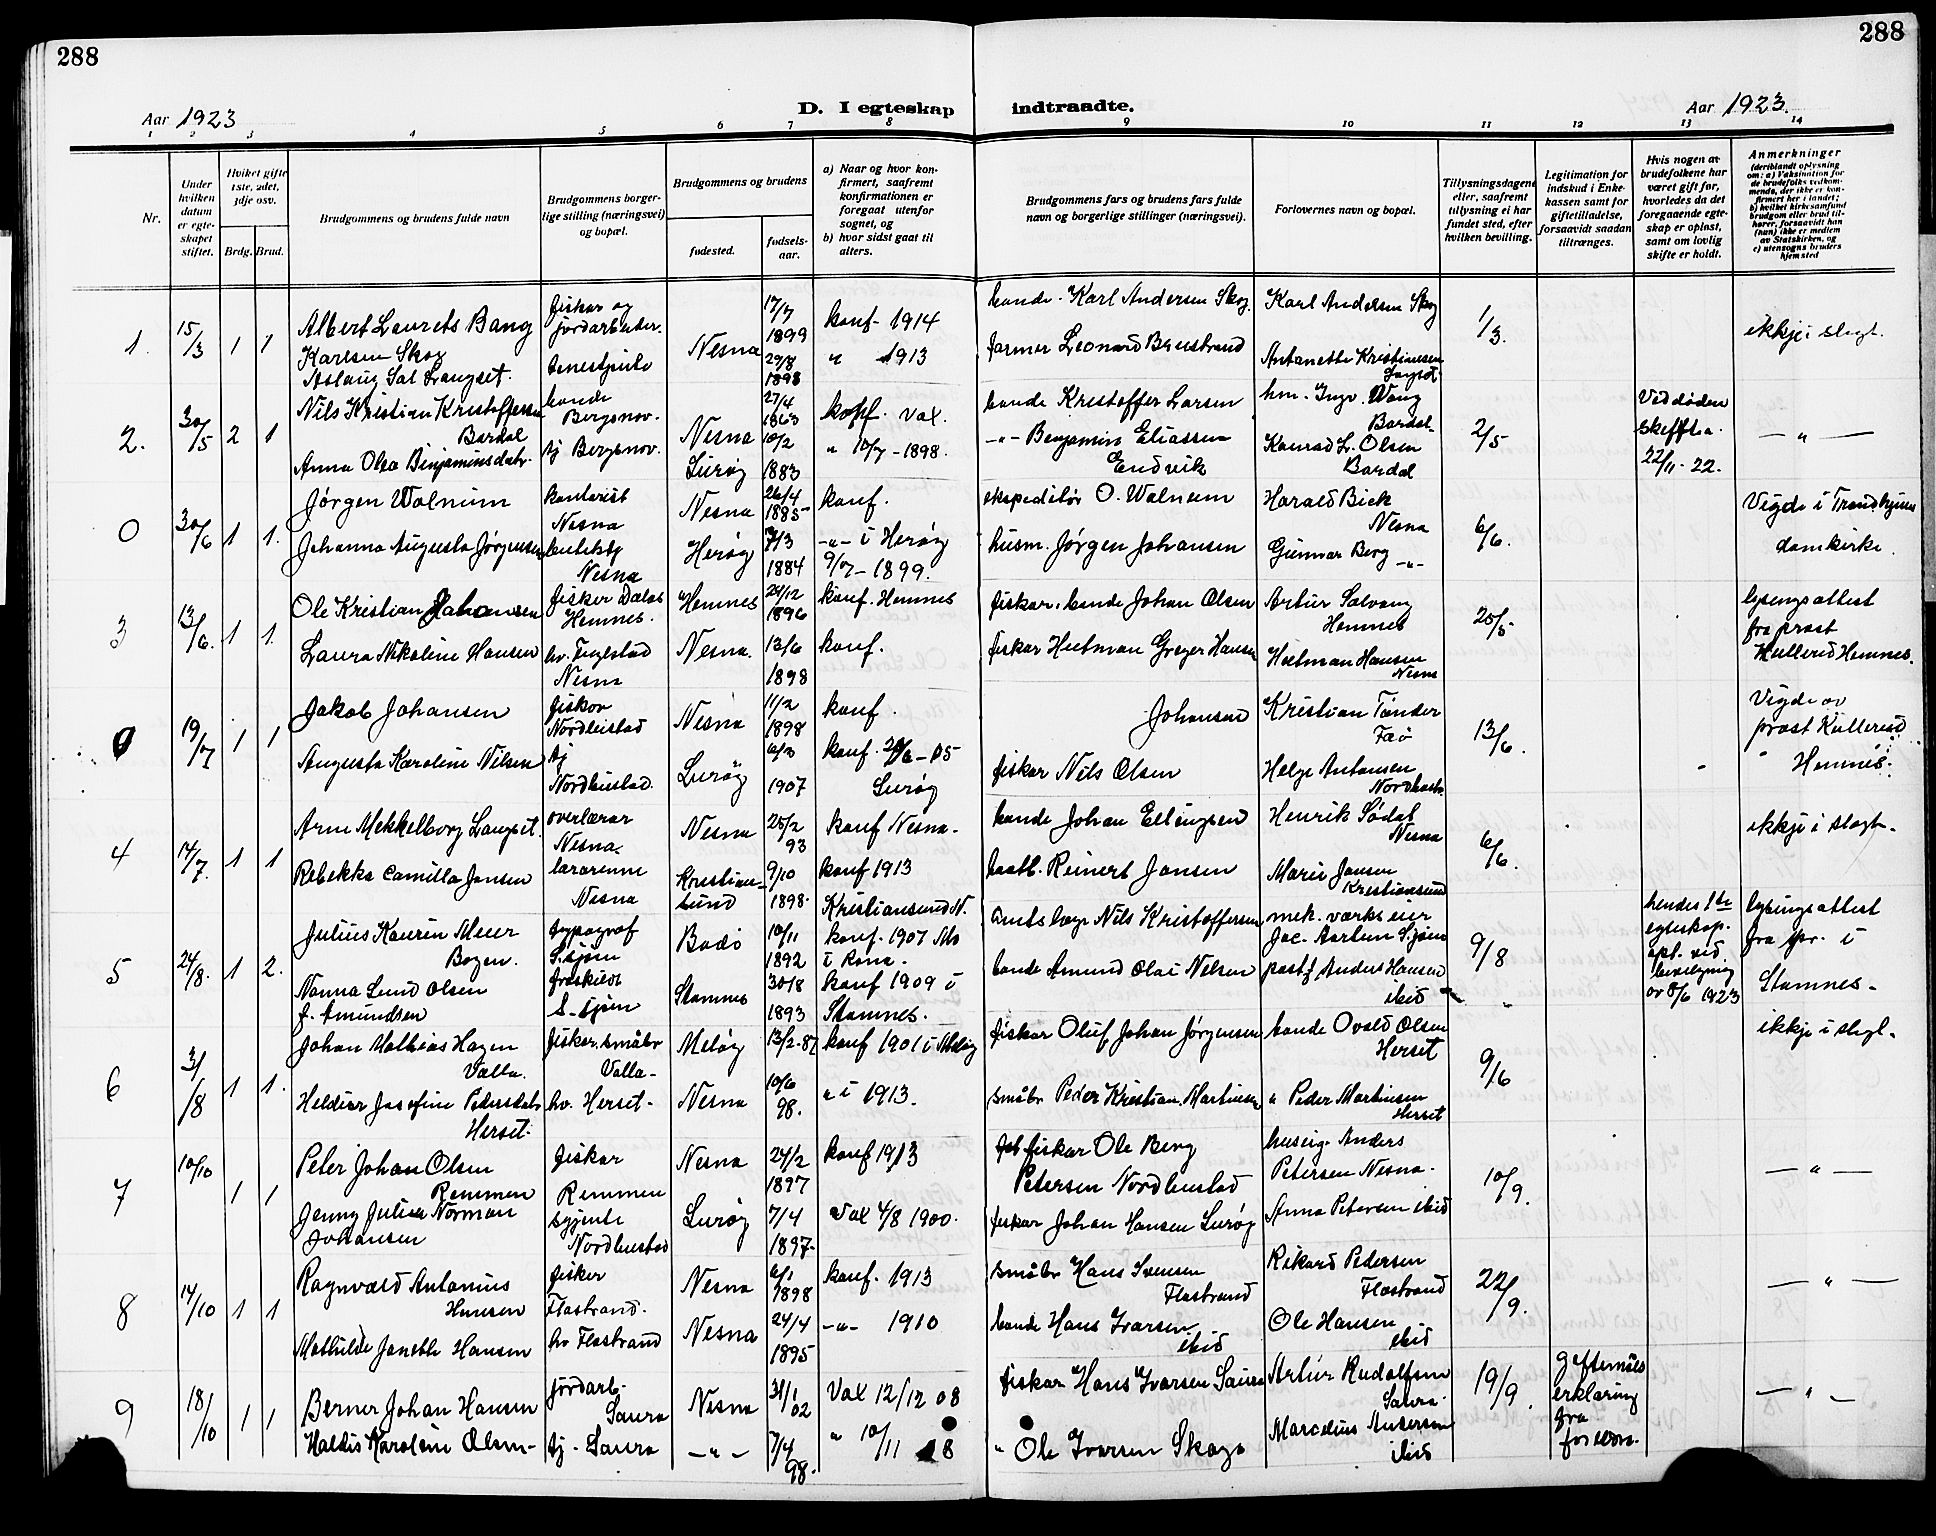 288
288
Aar 1923
D. I egteskap indtraadte.
Aar 1923.
1 2 3 4 5 6 7 8 9 10 11 12 13 14
Nr.
Under hvilken datum er egteskapet stiftet.
Hvilket gifte 1ste, 2det, 3dje osv.
Brdg. Brud.
Brudgommens og brudens fulde navn
Brudgommens borgerlige stilling (næringsvei) og bopæl.
Brudgommens og brudens
fødested.
fødselsaar.
a) Naar og hvor konfirmert, saafremt konfirmationen er foregaat utenfor sognet, og
b) hvor sidst gaat til alters.
Brudgommens fars og brudens fars fulde navn og borgerlige stillinger (næringsvei).
Forlovernes navn og bopæl.
Tillysningsdagene eller, saafremt tillysning ei har fundet sted, efter hvilken bevilling.
Legitimation for indskud i Enkekassen samt for giftetilladelse, forsaavidt saadan tiltrænges.
Hvis nogen av brudefolkene har været gift før, hvorledes da det foregaaende egteskap er opløst, samt om lovlig skifte er holdt.
Anmerkninger
1. 15/3 1 1
Albert Laurets Bang
Karlsen Skog
Aslaug Sal Langset.
fisker og
jordarbeider.
Nesna
17/7
1899
29/8
1898
konf. 1914
" 1913
bonde. Karl Andersen Skog.
farmer Leonard
Karl Andersen Skog
Antanette Kristiansen
1/3.
ikkje i slegt.
2. 30/5 2 1
Nils Kristian Kristoffersen
Bardal
Anna Olea Benjaminsdatr.
bonde
Bergsnov.
tj Bergsnov.
Nesna
Lurøy
27/4
1863
10/2
1883
konf. vax.
" 10/7 - 1898.
bonde Kristoffer Larsen
-"- Benjamin Eliassen
Endvik
hm. Ingv. Wang
Bardal
Konrad L. Olsen
Bardal
2/5
Ved døden
skifta.
22/11-22.
— " —
0 30/6 1 1.
Jørgen Walnum
Johanna Augusta Jørgensen
kontorist
Nesna
Nesna
Nesna
Herøy
26/4
1885
7/3
1884
konf.
-"- i Herøy
9/7 - 1899.
ekspeditør O. Walnum
husm. Jørgen Johansen
Harald Bick
Nesna
Gunnar Berg
-"-
6/6.
Vigde i Trondhjems
domkirke.
3 13/6. 1 1.
Ole Kristian Johansen
Laura Nikoline Hansen
fisker Dalos
Hemnes.
hv. Fuglstad
Nesna
Hemnes
Nesna.
24/12
1896
13/6
1898
konf. Hemnes
konf.
fisker. bonde Johan Olsen
fisker Hutman Greger Hansen
Artur Solvang
Hemnes
Hutman Hansen
Nesna
20/5-
lysingsattest
fra prost
Kullerud Hemnes.
0 19/7 1 1
Jakob Johansen
Augusta Karoline Nilsen
fisker
Nordhustad
tj
Nordhustad.
Nesna
Lurøy
11/2
1898
6/3
1907
konf.
Lurøy
Johansen
fisker Nils Olsen
Kristian Tønder
Helge Antonsen
13/6.
Vigde av
prost Kullerud
Hemnes.
4 14/7. 1 1
Arne Mekkelborg Langset.
Rebekka Camilla Jensen
overlærar
Nesna.
lærarinne
Nesna
Nesna
Kristian-
sund
25/2
93
9/10
1898.
konf Nesna.
konf 1913
Kristiansund N.
bonde Johan Ellingsen
Reinert Jansen
Henrik Sødal
Nesna
Marie Jansen
Kristiansund
6/6.
ikkje i slegt.
5 24/8. 1 2.
Julius Kaurin Meier
Bogen.
Nanna Lund Olsen
f. Amundsen
typograf
S.sjøen
fraskildt
S-sjøen
Bodø
Stamnes
10/11
1892
30/8
1893
konf. 1907 Mo
i Rana.
konf 1909 i
Stamnes.
Nils Kristoffersen
bonde Amund Olai Nelsen
mek. verks eier
postf Anders Hansen
ibid
9/8
hendes 1ste
egteskap
opl. ved
bevilgning
av 8/6 1923
lysingsattest
fra spr. i
Stamnes.
6 31/8 1 1.
Johan Mathias Hagen
Valla.
Heldiar Josefine Pedersdatr
Herset.
fisker. småbr
Valla.
hv. Herset.
Meløy
Nesna
13/2-87
10/6
98.
konf 1901 i Meløy
" i 1913.
fisker Oluf Johan Jørgensen
småbr Peder Kristian Martinsen
bonde Ovald Olsen
Herset
" Peder Martinsen
Herset
9/6
ikkje i slegt.
7 10/10 1 1
Peter Johan Olsen
Remmen
Jenny Julie Norman
Johansen
fisker
Remmen
syjente
Nordhustad
Nesna
Lurøy
24/2
1897
7/4
1897.
konf 1913
Vax 4/8 1900.
fisker Ole Berg
Petersen Nordhustad
fisker Johan Hansen Lurøy
huseig. Anders
Petersen Nesna.
Anna Petersen ibid
10/9.
— " —
8 14/10 1 1
Ragnvald Antonius
Hansen
Mathilde Janette Hansen
fisker
Flostrand.
hv Flostrand
Nesna
Nesna
6/1
1898
24/4
1895
konf. 1913
-"- 1910
småbr Hans Svensen
Flostrand
bonde Hans Ivarsen
ibid
Rikard Pedersen
Flostrand
Ole Hansen
ibid
22/9.
— " —
9 18/10 1 1
Berner Johan Hansen
Haldis Karoline Olsen
jordarb.
Saura
tj. Saura
Nesna
-"-
31/1
02
7/4
98.
Vax 12/12 08
" 10/11 8
fisker Hans Ivarsen Saura
" Ole Ivarsen Skogø
Artur Rudolfsen
Saura
Marcelius Andersen
ibid
19/9.
Gjiftemåls
erklæring
fra
forlov.
— " —